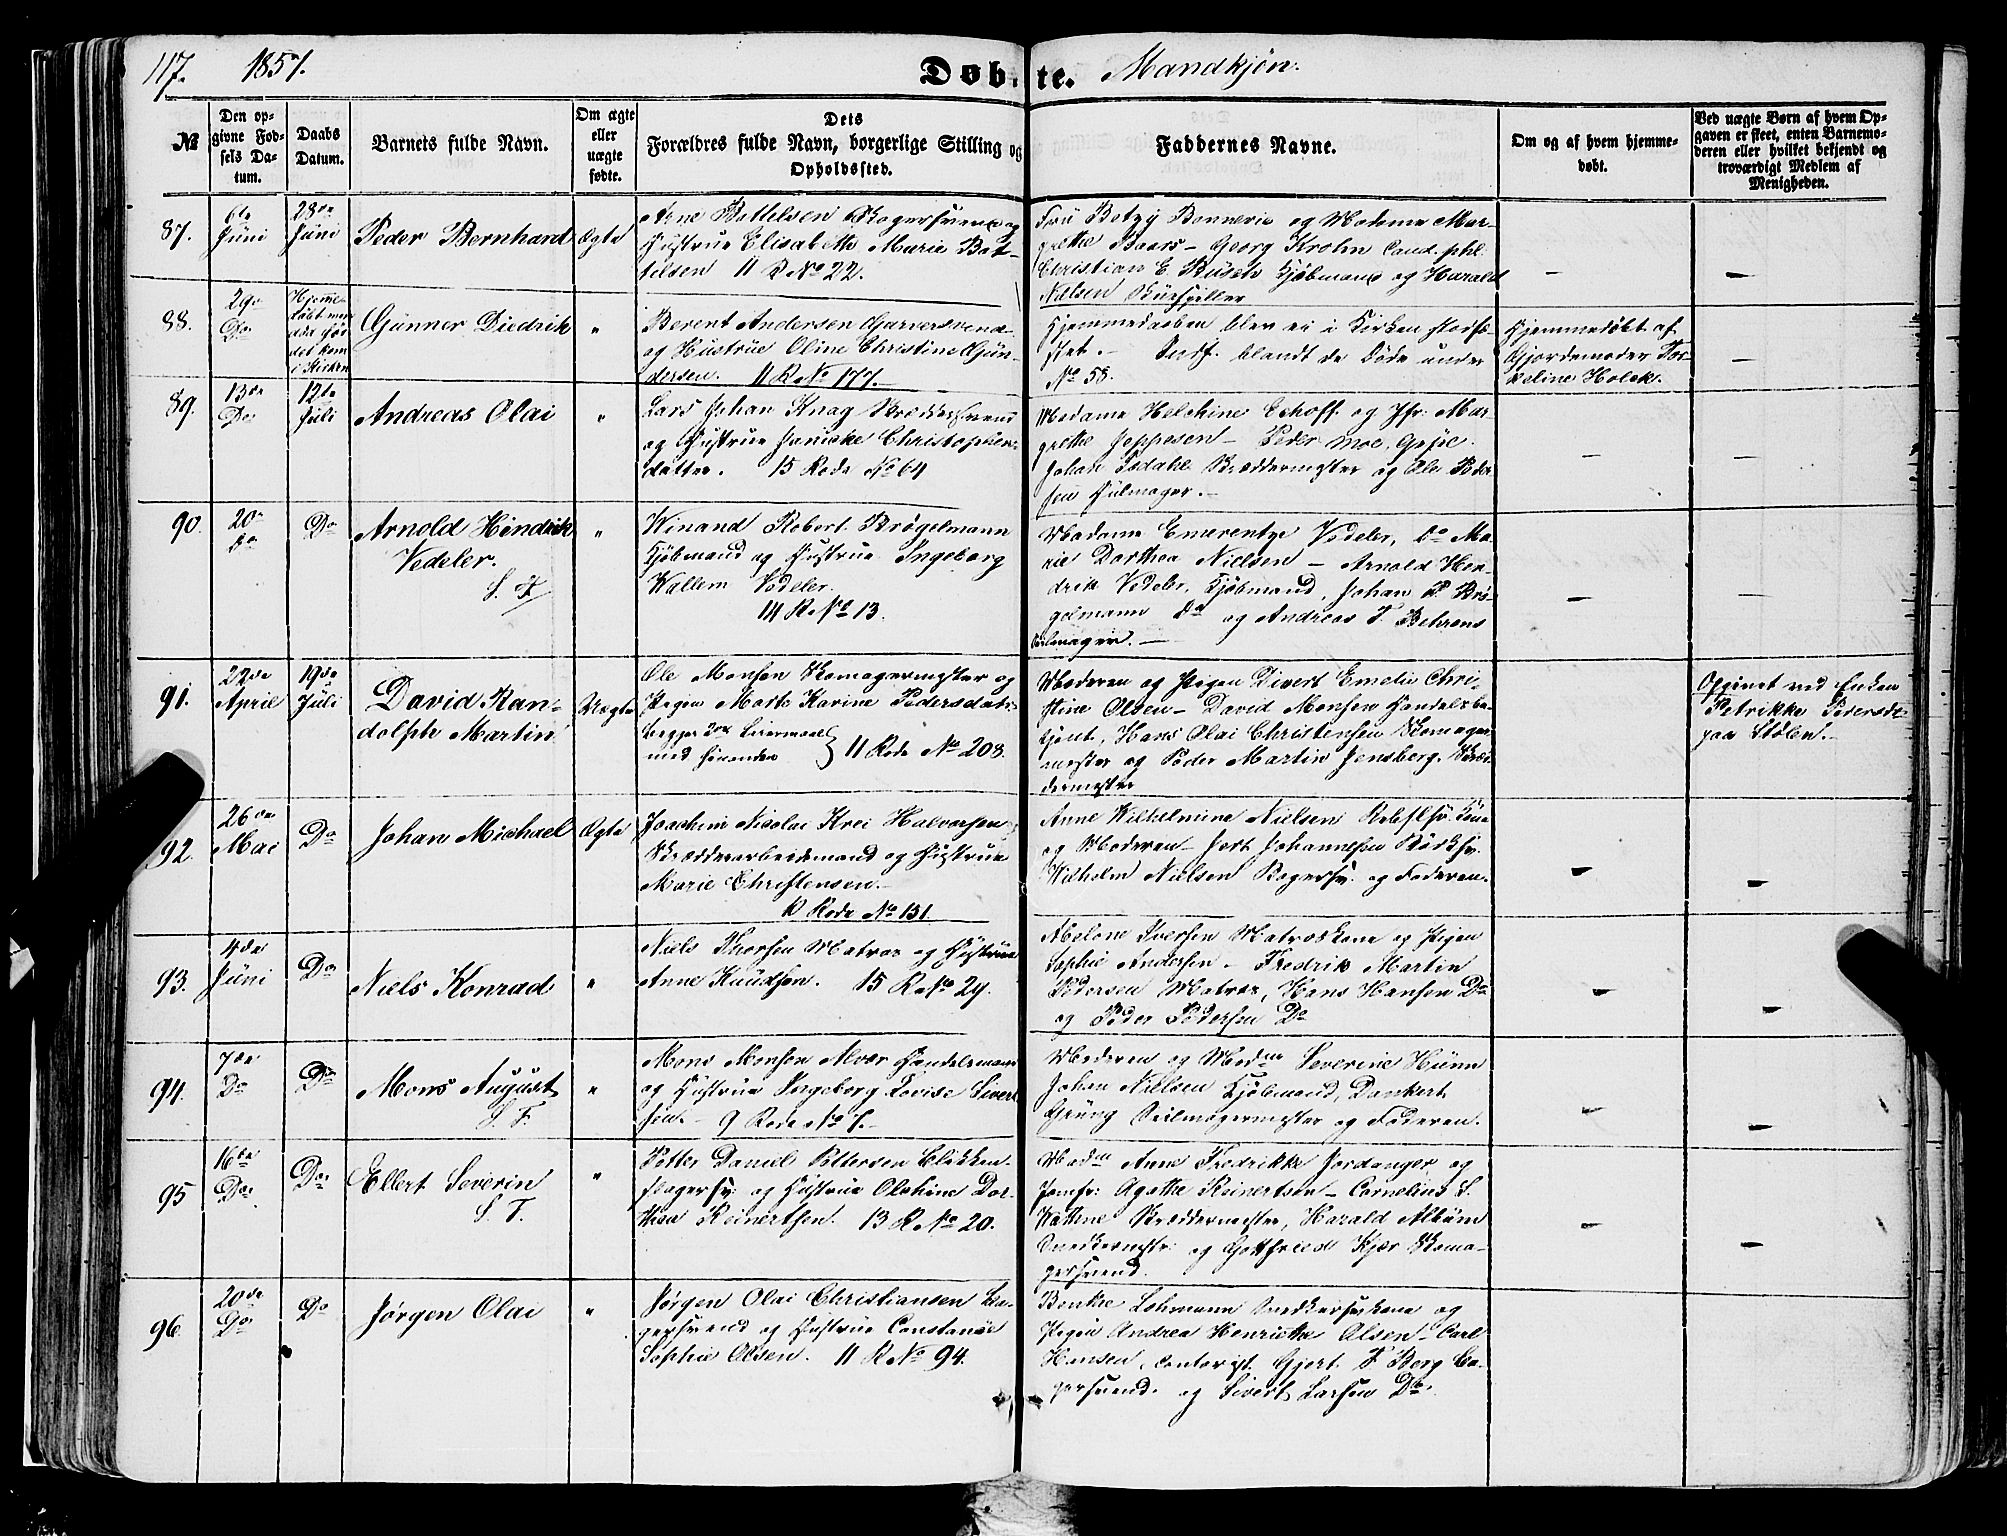 117. 1851.
Døbte. Mandkjøn.
№
Den opgivne Fødsels Datum.
Daabs Datum.
Barnets fulde Navn.
Om ægte eller uægte fødte.
Dets Forældres fulde Navn, borgerlige Stilling og Opholdssted.
Faddernes Navne.
Om og af hvem hjemmedøbt.
Ved uægte Børn af hvem Opgaven er skeet, enten Barnemoderen eller hvilket bekjendt og troværdigt Medlem af Menigheden.
87.
6te Juni
28de Juni
Peder Bernhard
Ægte
Arne Bottelsen Bagersvend og
Hustrue Elisabeth Marie Bot-
telsen 11 R No 22.
Fru Betzy Bonnevie og Madame Mar-
grethe Baars - Georg Krohn Cand. phil.
Christian E Busch Kjøbmand og Harald
Nielsen
—
—
88.
29de Do
Hjemme-
døbt men
døde før
det kom
i Kirken
Gunner Diedrik
"
Berent Andersen Garversvend
og Hustrue Oline Christine Gun-
dersen. 11 R No 177.
Hjemmedaaben blev ei i Kirken stadfæ-
stet. - Indf. blandt de Døde under
No 58.
Hjemmedøbt af
Gjordemoder Tor-
keline Holck.
—
89.
13de Do
12te Juli
Andreas Olai
"
Lars Johan Knag Skræddersvend
og Hustrue Janicke Christopher-
datter. 15 Rode No 64
Madame Helchine Eckhoff og Jfr: Mar-
grethe Jeppesen - Peder Moe,
Johan Isdahl Skræddermester og Ole Peder-
sen Hulmager.
—
—
90.
20de Do
Do
Arnold Hindrik
Vedeler.
S. T.
"
Winand Robert Brøgelmann
Kjøbmand og Hustrue Ingeborg
Wallem Vedeler.
14 R No 13.
Madame Emerentze Vedeler, Do Ma-
rie Dorthea Nielsen - Arnold Hen-
drik Vedeler, Kjøbmand, Johan F. Brø-
gelmann Do og Andreas T. Behrens
Seilmager. —
—
—
91.
22de April
19de Juli
David Ran-
dolph Martin
Uægte
Ole Monsen Skomagermester og
Pigen Marte Karine Pedersdatr
begges 2det Leiermaal
med hinanden } 11 Rode No 208
Moderen og Pigen Divert Emelie Chri-
stine Olsen - David Monsen Handelsbe-
tjent, Hans Olai Christensen Skomager-
mester og Peder Martin Jensberg, Skræd-
dermester
Opgivet ved Enken
Petrikke Pedersdtr
paa Stølen.
92.
26de Mai
Do
Johan Michael
Ægte
Joachim Nicolai Krei Halvorsen
Skrædderarbeidsmand og Hustrue
Marie Christensen.
10 Rode No 131
Anne Wilhelmine Nielsen Rebslsv. Kone
og Moderen - Jert Johannesen
Wilhelm Nielsen Bagersv. og Faderen.
—
—
93.
4de Juni
Do
Niels Konrad
"
Niels Thorsen Matros og Hustrue
Anne Knudsen. 15 R No 29.
Abelone Iversen Matroskone og Pigen
Sophie Andersen - Fredrik Martin
Pedersen Matros, Hans Hansen Do
og Peder Pedersen Do
—
—
94.
7de Do
Do
Mons August
S. T.
"
Mons Monsen Alver Handelsmand
og Hustrue Ingeborg Lovise Sivert-
sen. - 9 Rode No 7.
Moderen og Madme Severine Hunn
Johan Nielsen Kjøbmand, Dankert
Grung Seilmagermester og Faderen.
—
—
95
16de Do
Do
Ellert Severin
S. T.
"
Petter Daniel Pettersen Blikken-
slagersv: og Hustrue Olehine Dor-
thea Reinertsen. 13 R No 20.
Madme Anne Fredrikke Jordanger og
Jomfr: Agathe Reinertsen - Cornelius S.
Wathne Skræddermester, Harald Album
Snedkermstr: og Gottfried Kjær Skoma-
gersvend.
—
—
96.
20de Do
Do
Jørgen Olai
"
Jørgen Olai Christiansen Ba-
gersvend og Hustrue Constance
Sophie Olsen. 11 R No 94.
Benkte Lohmann Snedkersv.kone og
Pigen Andrea Henriette Olsen - Carl
Hansen, Contorist Gjert F Berg Ba-
gersvend. og Sivert Larsen Do.